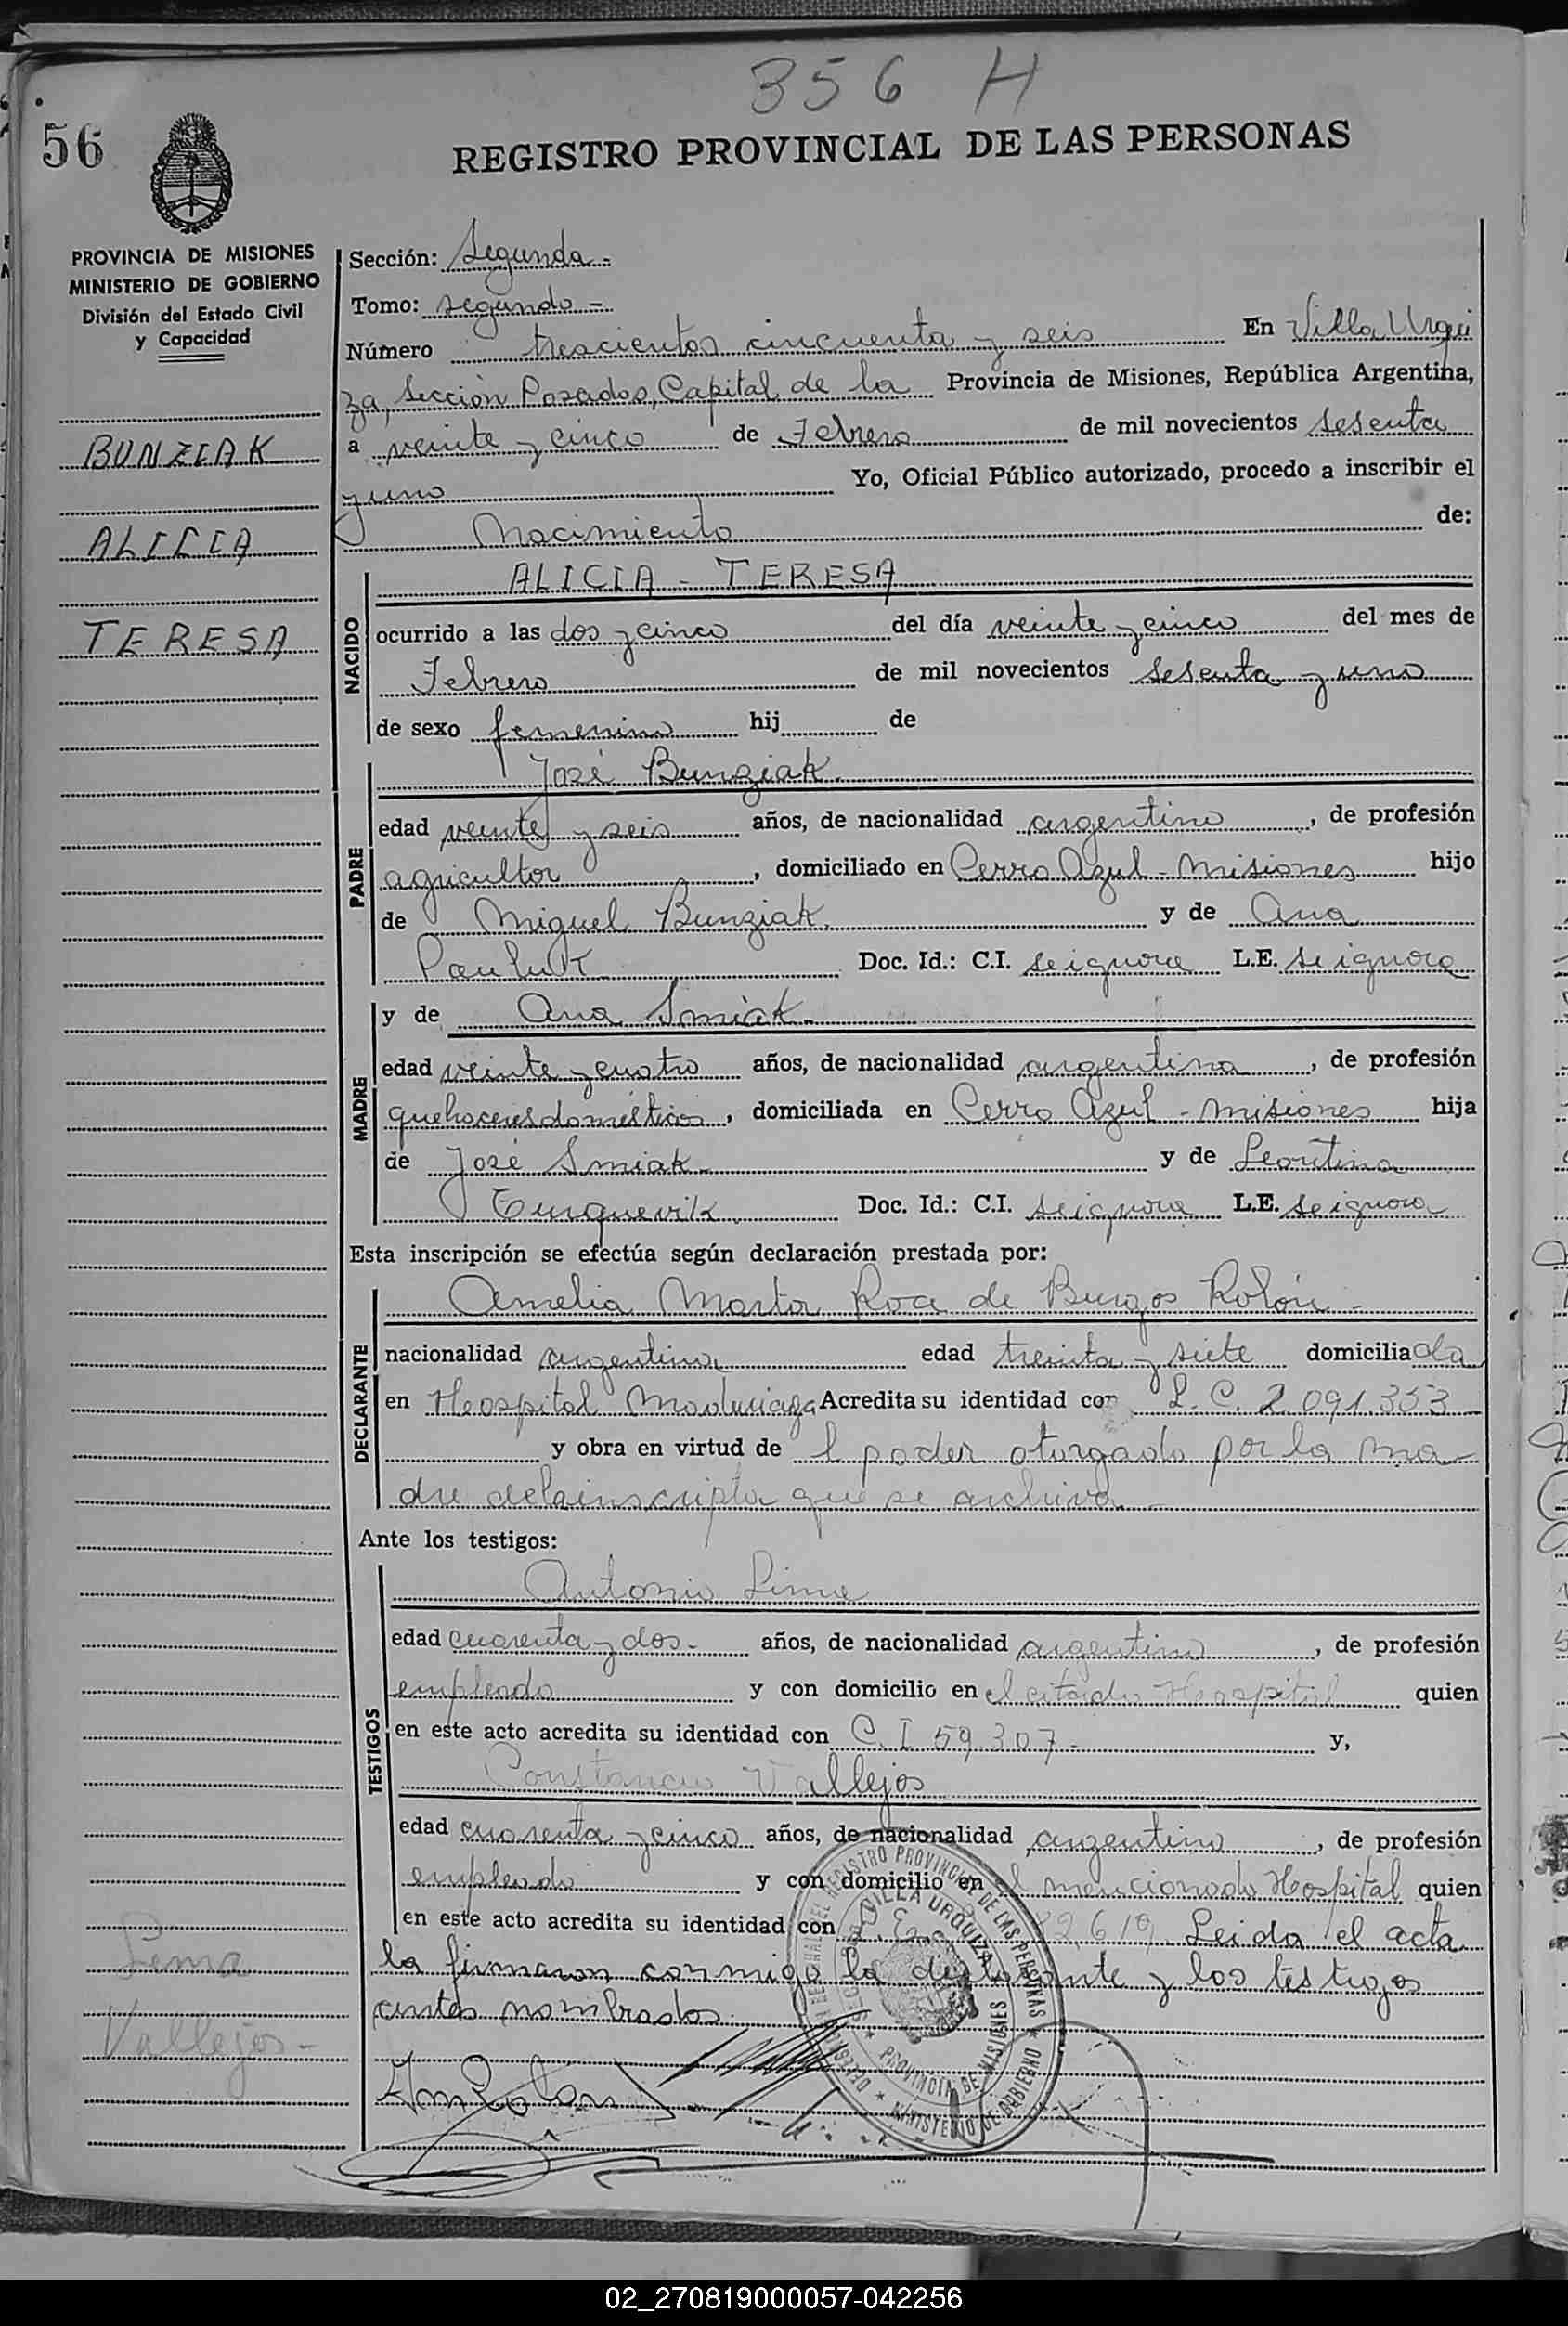 356 H
56
REGISTRO PROVINCIAL DE LAS PERSONAS
PROVINCIA DE MISIONES
MINISTERIO DE GOBIERNO
División del Estado Civil
y Capacidad
BUNZIAK
ALICIA
TERESA
Sección: Segunda.-
Tomo: segundo.-
Número trescientos cincuenta y seis En Villa Urqui
za, Sección Posadas, Capital de la Provincia de Misiones, República Argentina,
a veinte y cinco de Febrero de mil novecientos sesenta
y uno Yo, Oficial Público autorizado, procedo a inscribir el
Nacimiento de:
NACIDO
ALICIA - TERESA
ocurrido a las dos y cinco del día veinte y cinco del mes de
Febrero de mil novecientos sesenta y uno
de sexo femenino hij de
PADRE
José Bunziak.
edad veinte y seis años, de nacionalidad argentino, de profesión
agricultor, domiciliado en Cerro Azul - Misiones hijo
de Miguel Bunziak. y de Ana
Pauluk Doc. Id.: C.I. se ignora L.E. se ignora
MADRE
y de Ana Smiak.
edad veinte y cuatro años, de nacionalidad argentina, de profesión
quehaceres domésticos, domiciliada en Cerro Azul - Misiones hija
de José Smiak. y de Leontina
Doc. Id.: C.I. se ignora L.E. se ignora
Esta inscripción se efectúa según declaración prestada por:
DECLARANTE
Amelia Marta Roa de Burgos Rolón -
nacionalidad argentina edad treinta y siete domiciliada
en Hospital Madariaga Acredita su identidad con L.C. 2.091.353
y obra en virtud de l poder otorgado por la ma-
dre de la inscripta que se archiva.-
Ante los testigos:
TESTIGOS
Antonio Lima
edad cuarenta y dos.- años, de nacionalidad argentino, de profesión
empleado y con domicilio en el citado Hospital quien
en este acto acredita su identidad con C.I 59.307.- y,
Constancio Vallejos
edad cuarenta y cinco años, de nacionalidad argentino, de profesión
empleado y con domicilio en el mencionado Hospital quien
en este acto acredita su identidad con L.E. Leida el acta
la firmaron conmigo la declarante y los testigos
antes nombrados.
Lima
Vallejos-
REGISTRO PROVINCIAL DE LAS PERSONAS
VILLA URQUIZA
PROVINCIA DE MISIONES
MINISTERIO DE GOBIERNO
02_270819000057-042256